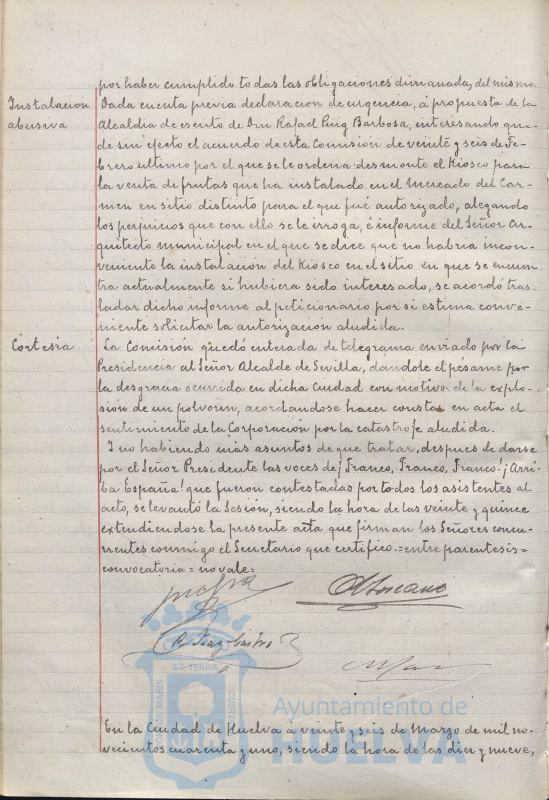 por haber cumplido todas las obligaciones dimanadas del mismo.
Instalacion abusiva
Dada cuenta previa declaracion de urgencia, á propuesta de la
Alcaldia de escrito de Don Rafael Puig Barbosa, interesando que-
de sin efecto el acuerdo de esta Comisión de veinte y seis de Fe-
brero ultimo por el que se le ordena desmonte el Kiosco para
la venta de frutas que ha instalado en el Mercado del Car-
men en sitio distinto para el que fué autorizado, alegando
los perjuicios que con ello se le irroga, é informe del Señor Ar-
quitecto municipal en el que se dice que no habria incon-
veniente la instalación del Kiosco en el sitio en que se encuen
tra actualmente si hubiera sido interesado, se acordó tras
ladar dicho informe al peticionario por si estima conve-
niente solicitar la autorización aludida.
Cortesia
La Comisión quedó enterada de telegrama enviado por la
Presidencia al Señor Alcalde de Sevilla, dandole el pésame por
la desgracia ocurrida en dicha Ciudad con motivo de la explo-
sión de un polvorin, acordandose hacer constar en acta el
sentimiento de la Corporación por la catastrofe aludida.
Y no habiendo más asuntos de que tratar, despues de darse
por el Señor Presidente las voces de ¡Franco, Franco, Franco! ¡Arri-
ba España! que fueron contestadas por todos los asistentes al
acto, se levantó la Sesión, siendo la hora de las veinte y quince
extendiendose la presente acta que firman los Señores concu-
rrentes conmigo el Secretario que certifico.=entre parentesis=
convocatoria=no vale=
ET TERRÆ
Ayuntamiento de
HUELVA
En la Ciudad de Huelva a veinte y seis de Marzo de mil no-
vecientos cuarenta y uno, siendo la hora de las diez y nueve,